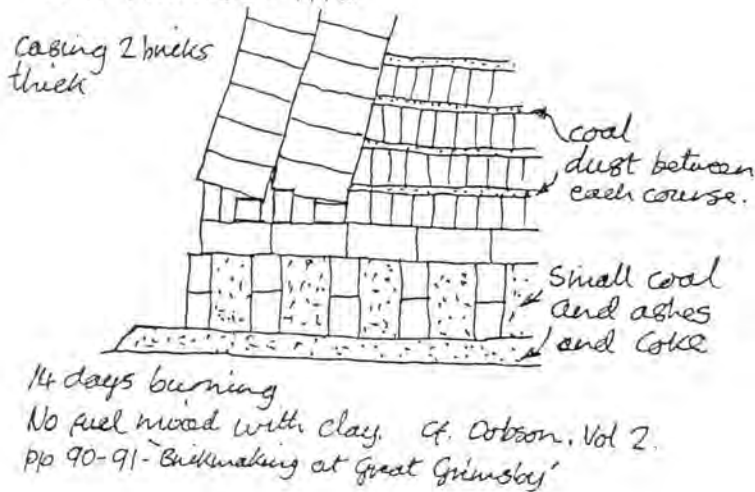 Casing 2 bricks
thick
coal
dust between
each course.
Small coal
and ashes
and Coke
14 days burning
No fuel mixed with clay. cf. Dobson, Vol 2.
pp 90-91 - 'Brickmaking at Great Grimsby'